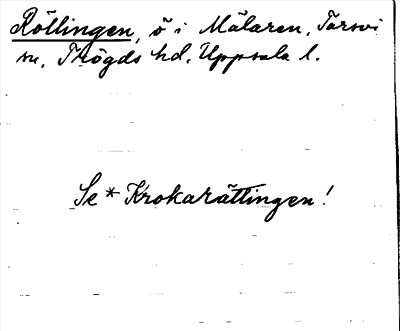 Rötlingen, ö i Mälaren, Torsvi
sn, Trögds hd, Uppsala l.
Se * Krokarätlingen!